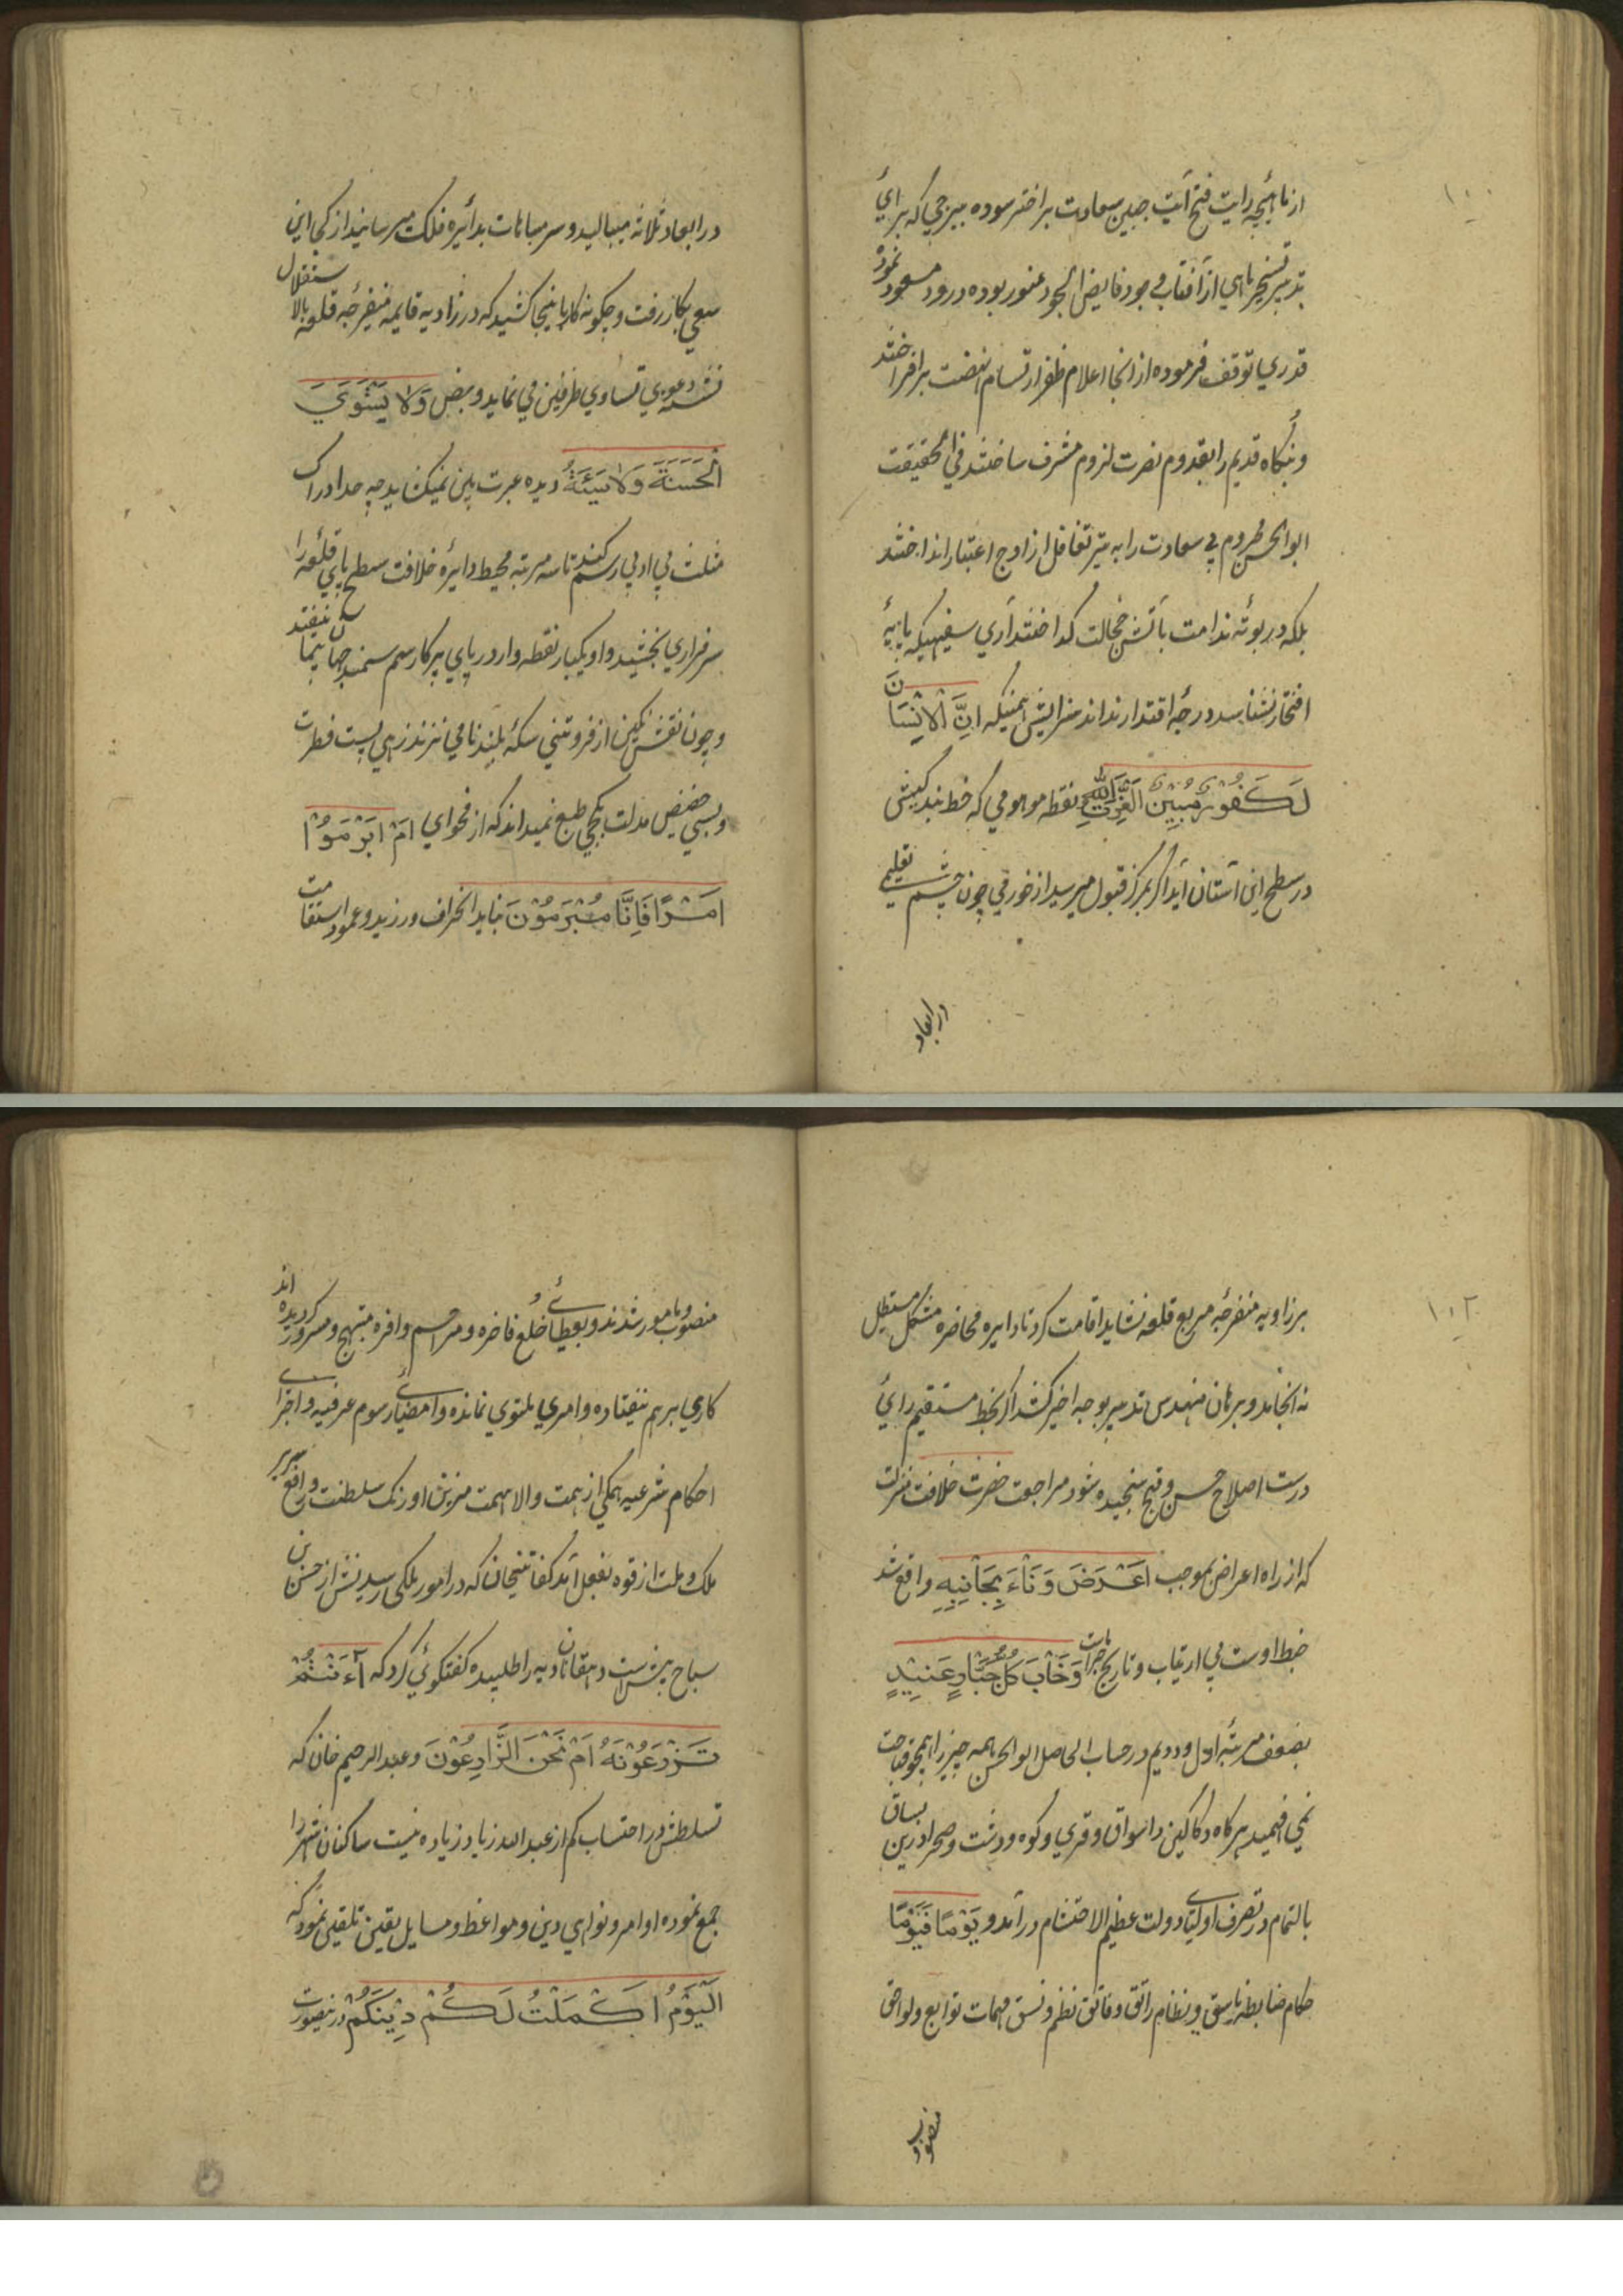 ۱۰۰
از ماهیچه رایت فتح آیت جبین سعادت بر اختر سوده ببرجی که برای
تدبیر تسخیر ماهی از آفتاب جود فایض الجود عنور بوده درود مسعود نمود
قدری توقف فرموده از انجا اعلام ظفر ارتسام نهضت برافراختند
و بنگاه قدیم را بقدوم نصرت لزوم مشرف ساختند فی الحقیقت
ابوالحسن محروم بی سعادت را به تیر تغافل از اوج اعتبار انداختند
بلکه در بوته ندامت بآتش خجالت گداختند آری سفیهیکه پایه
افتخار نشناسد و درجه اقتدار نداند سزایش همینکه اِنَّ الْاِنْسَانَ
لَكَفُوْرٌ مُبِيْنٌ نقطه موهومی که خط بندگیش
در سطح این آستان آید اگر بمرکز قبول میرسید از خرمی چون جسم تعلیمی
در ابعاد
در ابعاد ثلاثه میبالید و سر مباهات بدائره فلک میرسانید از کجی این
سعی بکار رفت و چگونه کار باینجا کشید که در زاویه قایمه منفرجه قلعه بالا استقلال
نشسته دعوی تساوی طرفین می نماید و بنص وَلَا يَسْتَوِي
الْحَسَنَةُ وَلَا سَيِّئَةُ دیده عبرت بین نمیکشاید چه حد ادراک
مثلث بی ادبی رسم کند تا سه مرتبه محیط دایره خلافت سطح پای قلعه را
سرفرازی بخشید و او یکبار نقطه وار در پای پرکار سم سمند جهان پیما نیفتد
و چون نقش نگین از فروتنی سکه بلند نامی نزند زهی پست فطرت
و بسی حضیض مذلت بکجی طبع نمیداند که از فحوای اَمْ اَبْرَمُوْا
اَمْرًا فَاِنَّا مُبْرِمُوْنَ نباید انحراف ورزید و عمود استقامت
۱۰۲
بر زاویه منفرجه مربع قلعه نشاید اقامت کرد تا دایره محاضره مشکل مستطیل
نه انجامد و برهان مهندس تدبیر بوجه اخیر کشد اگر بخط مستقیم رای
درست اصلاح حسن و قبح سنجیده شود مراجعت حضرت خلافت منزلت
که از راه اعراض بموجب اَعْرَضَ وَنَاءَ بِجَانِبِهِ واقع شد
خط اوست بی ارتیاب و تاریخ خرابات وَخَابَ كُلُّ جَبَّارٍ عَنِيْدٍ
بضعف مرتبه اول و دویم در حساب الحاصل ابوالحسن با همه چیز را همچو قباحت
نمی فهمید هرگاه دکاکین و اسواق و قری و کوه و دشت و صحرا درین بساق
بالتمام در تصرف اولیای دولت عظیم الاحتشام درآمد و يَوْمًا فَيَوْمًا
حکام ضابطه ناسق و بنظام راتق و فاتق نظم و نسق مهمات توابع و لواحق
منصوب و
منصوب و مامور شدند و بعطای خلع فاخره و مراحم وافره مبتهج و مسرور گردیده اند
کاری برهم نیفتاده و امری ملتوی نمانده و امضای رسوم عرفیه و اجرای
احکام شرعیه همگی از همت والا نهمت مزین اورنگ سلطنت و رافع سریر
ملک و ملت از قوه بفعل آمد کفایتخان که در امور ملکی رسیدنش از حسن
سباح بیشتر است دهقانان دیه را طلبیده گفتگوئی کرد که ءَاَنْتُمْ
تَزْرَعُوْنَهُ اَمْ نَحْنُ الزَّارِعُوْنَ و عبدالرحیم خان که
تسلطش در احتساب کم از عبد الله زیاد زیاده نیست ساکنان شهر را
جمع نموده اوامر و نواهی دین و مواعظ و مسایل یقین تلقین نمود که
اَلْيَوْمَ اَكْمَلْتُ لَكُمْ دِيْنَكُمْ درینصورت